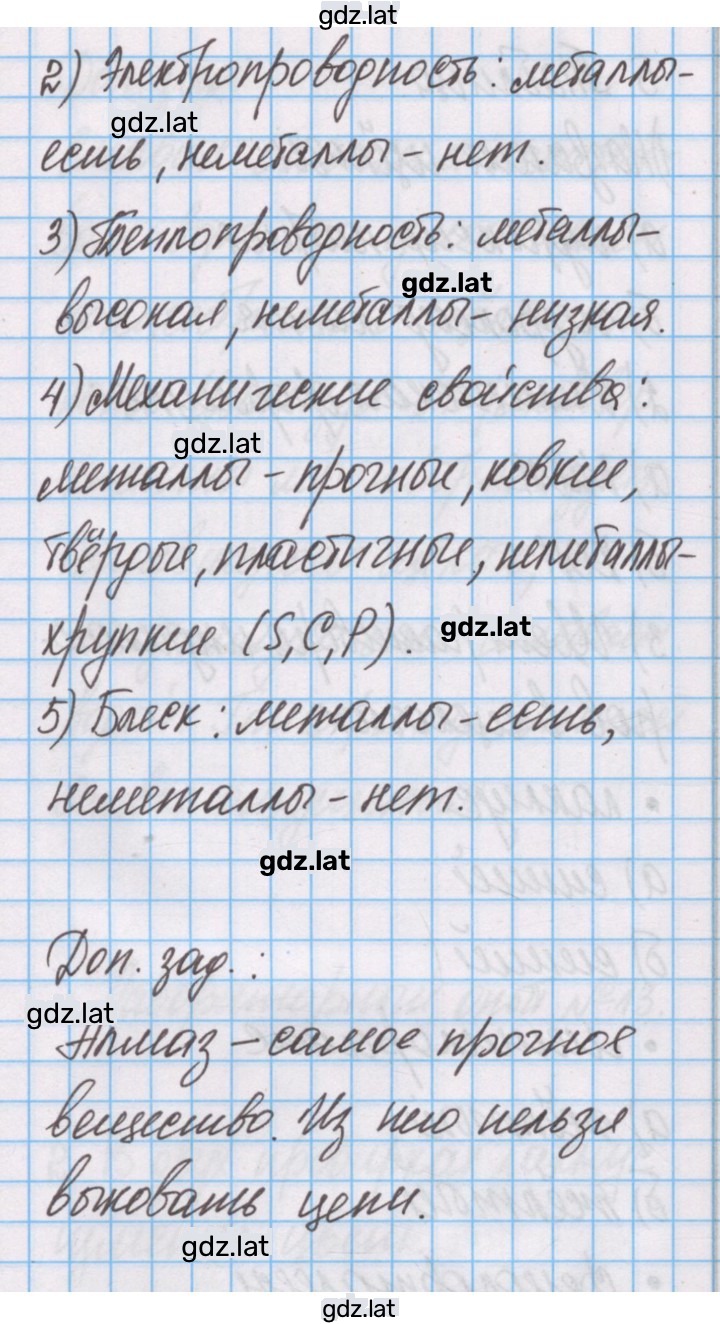 gdz.lat
2) Электропроводность: металлы-
gdz.lat
есть, неметаллы - нет.
3) Теплопроводность: металлы-
gdz.lat
высокая, неметаллы - низкая.
4) Механические свойства:
gdz.lat
металлы - прочные, ковкие,
твёрдые, пластичные, неметаллы-
хрупкие (S, C, P).
gdz.lat
5) Блеск: металлы - есть,
неметаллы - нет.
gdz.lat
Доп. зад.:
gdz.lat
Алмаз - самое прочное
вещество. Из него нельзя
выковать цепи.
gdz.lat
gdz.lat